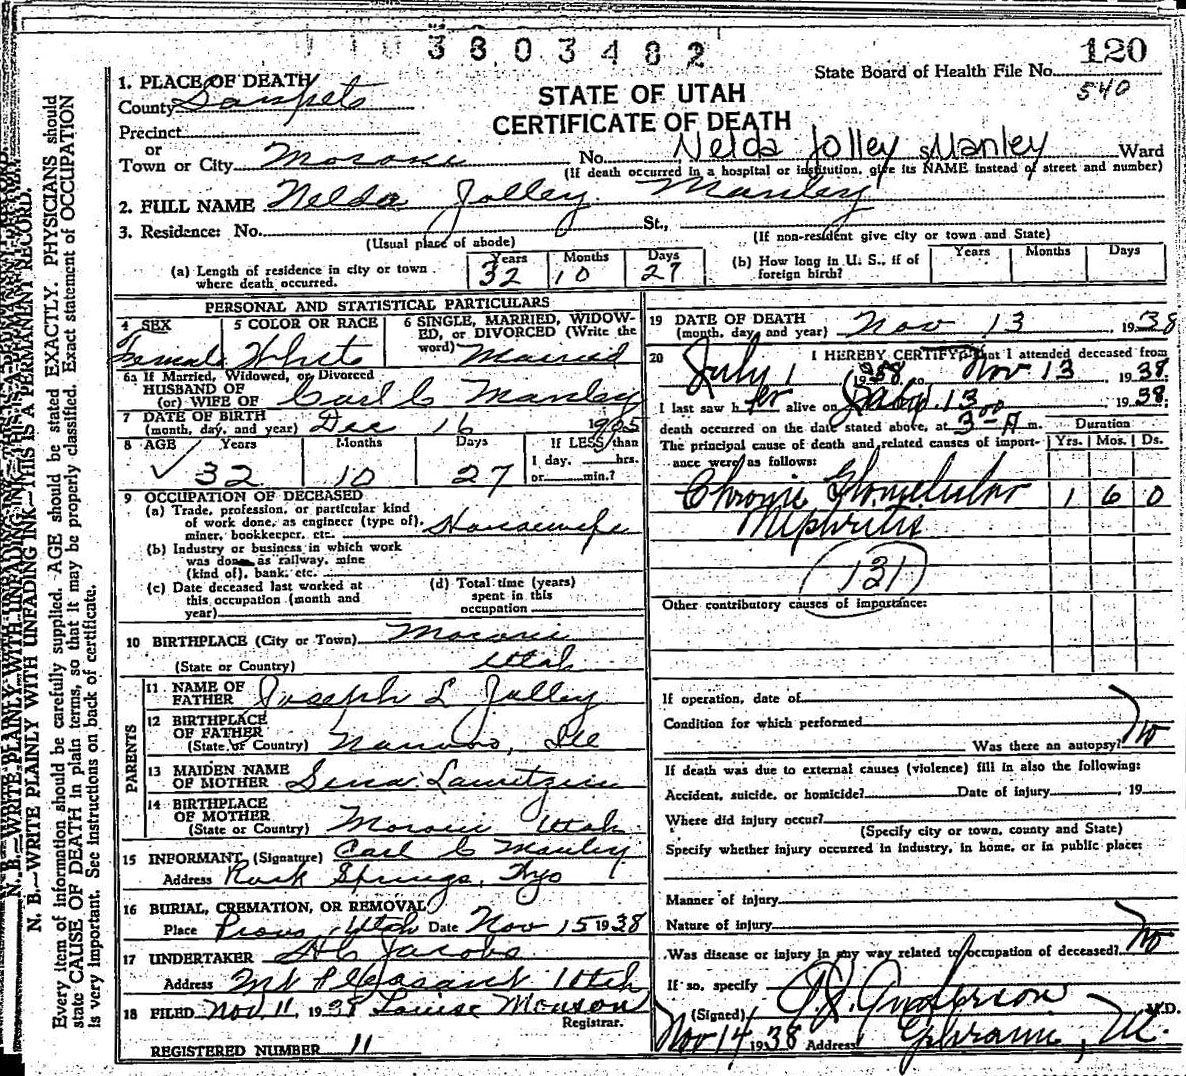 3803482
120
State Board of Health File No.
540
1. PLACE OF DEATH
County Sanpete
STATE OF UTAH
CERTIFICATE OF DEATH
Precinct
or
Town or City Moroni No. Nelda Jolley Manley Ward
(If death occurred in a hospital or institution, give its NAME instead of street and number)
2. FULL NAME Nelda Jolley Manley
3. Residence: No. St.,
(Usual place of abode) (If non-resident give city or town and State)
(a) Length of residence in city or town where death occurred. Years 32 Months 10 Days 27
(b) How long in U. S., if of foreign birth? Years Months Days
PERSONAL AND STATISTICAL PARTICULARS
4 SEX Female
5 COLOR OR RACE White
6 SINGLE, MARRIED, WIDOWED, or DIVORCED (Write the word) Married
6a If Married, Widowed, or Divorced
HUSBAND OF
(or) WIFE OF Carl C Manley
7 DATE OF BIRTH
(month, day, and year) Dec 16 1905
8 AGE Years 32 Months 10 Days 27
If LESS than
1 day, hrs.
or min.?
9 OCCUPATION OF DECEASED
(a) Trade, profession, or particular kind
of work done, as engineer (type of),
miner, bookkeeper, etc. Housewife
(b) Industry or business in which work
was done, as railway, mine
(kind of), bank, etc.
(c) Date deceased last worked at
this occupation (month and
year)
(d) Total time (years)
spent in this
occupation
10 BIRTHPLACE (City or Town) Moroni
(State or Country) Utah
PARENTS
11 NAME OF
FATHER Joseph L Jolley
12 BIRTHPLACE
OF FATHER
(State or Country) Nauvoo, Ill
13 MAIDEN NAME
OF MOTHER Sena Lauritzen
14 BIRTHPLACE
OF MOTHER
(State or Country) Moroni Utah
15 INFORMANT (Signature) Carl C Manley
Address Rock Springs, Wyo
16 BURIAL, CREMATION, OR REMOVAL
Place Provo, Utah Date Nov 15 1938
17 UNDERTAKER Jacobs
Address Mt Pleasant Utah
18 FILED Nov 11, 1938 Louise Monson
Registrar.
REGISTERED NUMBER 11
19 DATE OF DEATH
(month, day and year) Nov 13, 1938
20 I HEREBY CERTIFY, that I attended deceased from
July 1 1938 to Nov 13, 1938
I last saw her alive on Nov 13, 1938;
death occurred on the date stated above, at 3-00 A m.
The principal cause of death and related causes of importance were as follows:
Duration
Yrs. Mos. Ds.
Chronic Glomelular 1 6 0
Nephritis
131
Other contributory causes of importance:
If operation, date of
Condition for which performed
Was there an autopsy? No
If death was due to external causes (violence) fill in also the following:
Accident, suicide, or homicide? Date of injury , 19
Where did injury occur?
(Specify city or town, county and State)
Specify whether injury occurred in industry, in home, or in public place:
Manner of injury
Nature of injury
Was disease or injury in any way related to occupation of deceased? No
If so, specify
(Signed) Anderson M.D.
Nov 14 1938 Address Ephraim, Ut.
N. B.—WRITE PLAINLY WITH UNFADING INK—THIS IS A PERMANENT RECORD.
Every item of information should be carefully supplied. AGE should be stated EXACTLY. PHYSICIANS should
state CAUSE OF DEATH in plain terms, so that it may be properly classified. Exact statement of OCCUPATION
is very important. See instructions on back of certificate.